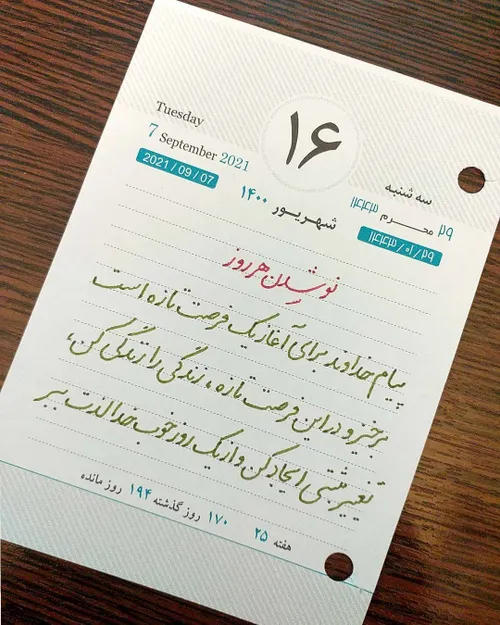 Tuesday
7 September 2021
2021 / 09 / 07
۱۶
سه شنبه
۲۹ محرم ۱۴۴۳
۱۴۴۳ / ۰۱ / ۲۹
شهریور ۱۴۰۰
نو شدن هر روز
پیام خداوند برای آغاز یک فرصت تازه است
برخیز و در این فرصت تازه، زندگی را زندگی کن،
تغییر مثبتی ایجاد کن و از یک روز خوب خدا لذت ببر
هفته ۲۵ ۱۷۰ روز گذشته ۱۹۴ روز مانده